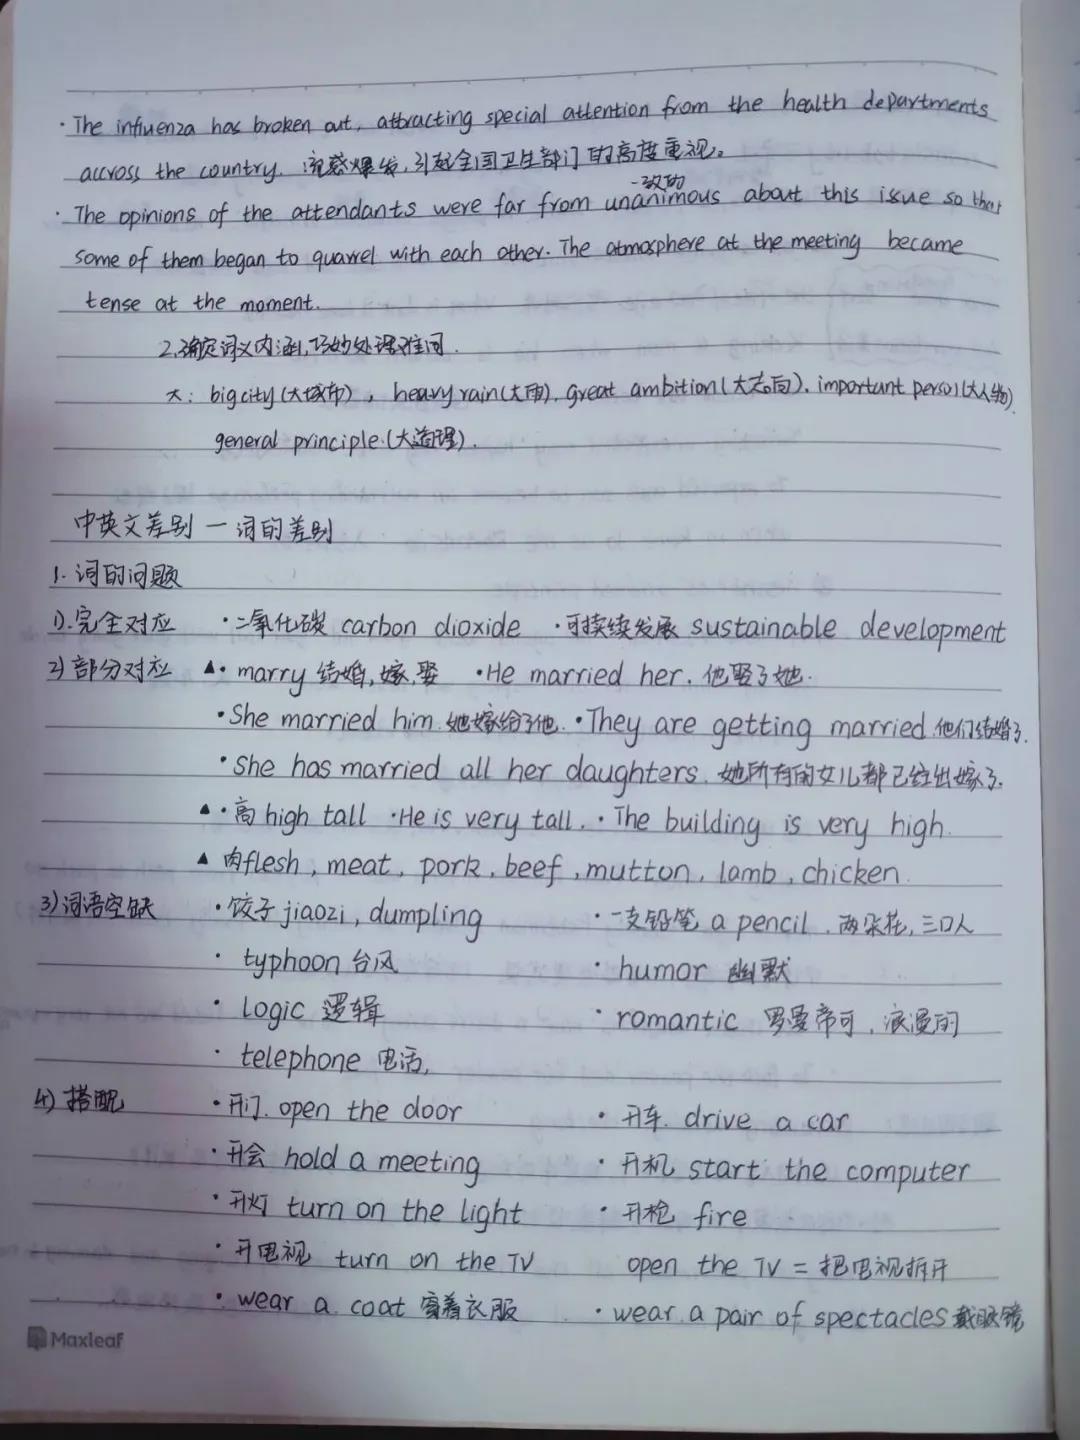 · The influenza has broken out, attracting special attention from the health departments
accross the country. 流感爆发,引起全国卫生部门的高度重视。
一致的
· The opinions of the attendants were far from unanimous about this issue so that
some of them began to quarrel with each other. The atmosphere at the meeting became
tense at the moment.
2.确定词义内涵,巧妙处理难词.
大: big city(大城市), heavy rain(大雨), great ambition(大志向), important person(大人物)
general principle.(大道理).
中英文差别 — 词的差别
1. 词的问题
1).完全对应 ·二氧化碳 carbon dioxide ·可持续发展 sustainable development
2)部分对应 ▲· marry 结婚,嫁,娶 ·He married her. 他娶了她.
·She married him. 她嫁给了他. ·They are getting married.他们结婚了.
·She has married all her daughters. 她所有的女儿都已经出嫁了.
▲·高 high tall ·He is very tall. ·The building is very high.
▲ 肉flesh, meat, pork, beef, mutton, lamb, chicken.
3)词语空缺 ·饺子 jiaozi, dumpling ·一支铅笔 a pencil, 两朵花, 三口人
· typhoon 台风 · humor 幽默
· logic 逻辑 · romantic 罗曼帝可, 浪漫的
· telephone 电话,
4)搭配 ·开门. open the door · 开车. drive a car
·开会 hold a meeting · 开机 start the computer
·开灯 turn on the light · 开枪 fire
·开电视 turn on the TV open the TV = 把电视拆开
· wear a coat 穿着衣服 · wear a pair of spectacles 戴眼镜
Maxleaf